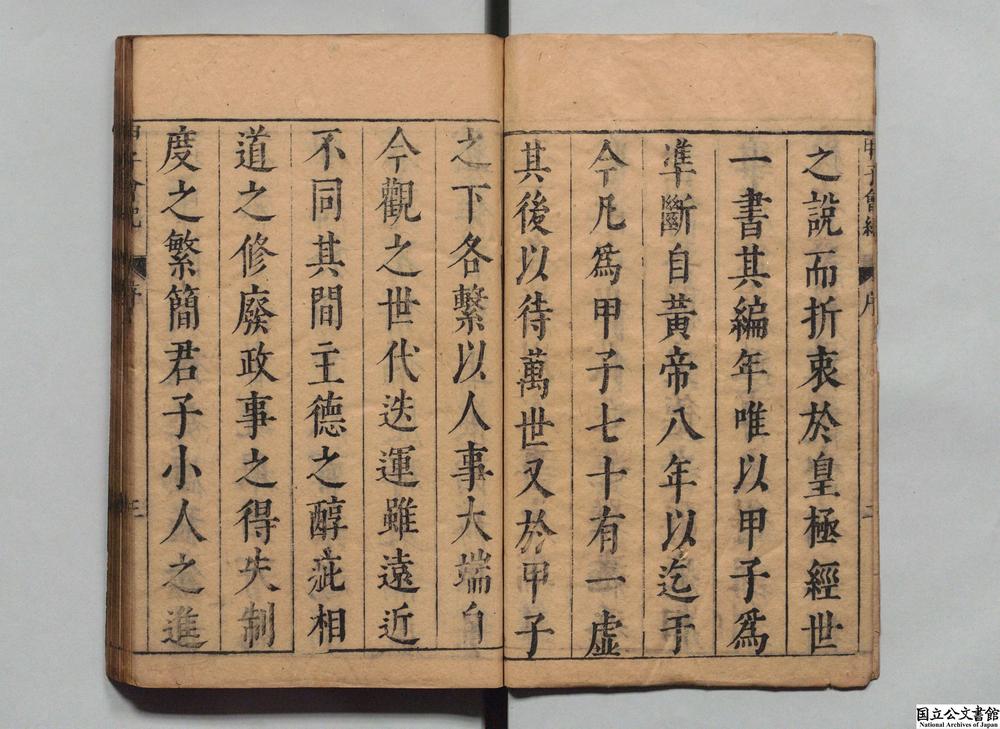 之說而折衷於皇極經世
一書其編年唯以甲子爲
準斷自黃帝八年以迄于
今凡爲甲子七十有一虛
其後以待萬世又於甲子
之下各繫以人事大端自
今觀之世代迭運雖遠近
不同其間主德之醇疵相
道之修廢政事之得失制
度之繁簡君子小人之進
甲子會紀
序
三
国立公文書館
National Archives of Japan